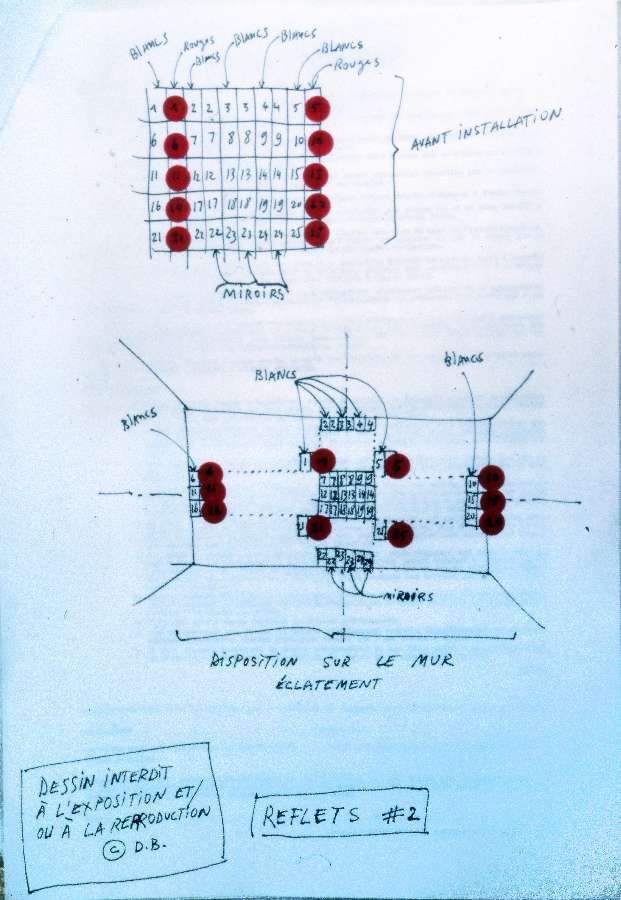 BLANCS
Rouges
Blancs
BLANCS
BLANCS
BLANCS
ROUGES
1 2 2 3 3 4 4 5
6 7 7 8 8 9 9 10
11 12 12 13 13 14 14 15
16 17 17 18 18 19 19 20
21 22 22 23 23 24 24 25
AVANT INSTALLATION
MIROIRS
BLANCS
BLANCS
BLANCS
2 2 3 3 4 4
1
5
5
6
7 7 8 8 9 9
10
11
12 12 13 13 14 14
15
16
17 17 18 18 19 19
20
21
25
22 22 23 23 24 24
MIROIRS
DISPOSITION SUR LE MUR
ÉCLATEMENT
DESSIN INTERDIT
À L'EXPOSITION ET/
OU À LA REPRODUCTION
© D.B.
REFLETS #2